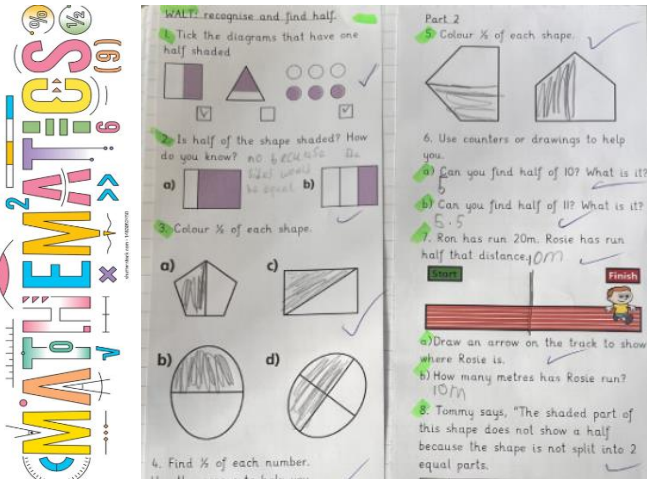 MATHEMATICS
shutterstock.com
WALT: recognise and find half.
1. Tick the diagrams that have one
half shaded
2. Is half of the shape shaded? How
do you know? no because
would
be equal
a)
b)
3. Colour ½ of each shape.
a)
c)
b)
d)
4. Find ½ of each number.
Part 2
5. Colour ½ of each shape.
6. Use counters or drawings to help
you.
a) Can you find half of 10? What is it?
5
b) Can you find half of 11? What is it?
5.5
7. Ron has run 20m. Rosie has run
half that distance. 10m
Start
Finish
a) Draw an arrow on the track to show
where Rosie is.
b) How many metres has Rosie run?
10m
8. Tommy says, "The shaded part of
this shape does not show a half
because the shape is not split into 2
equal parts.